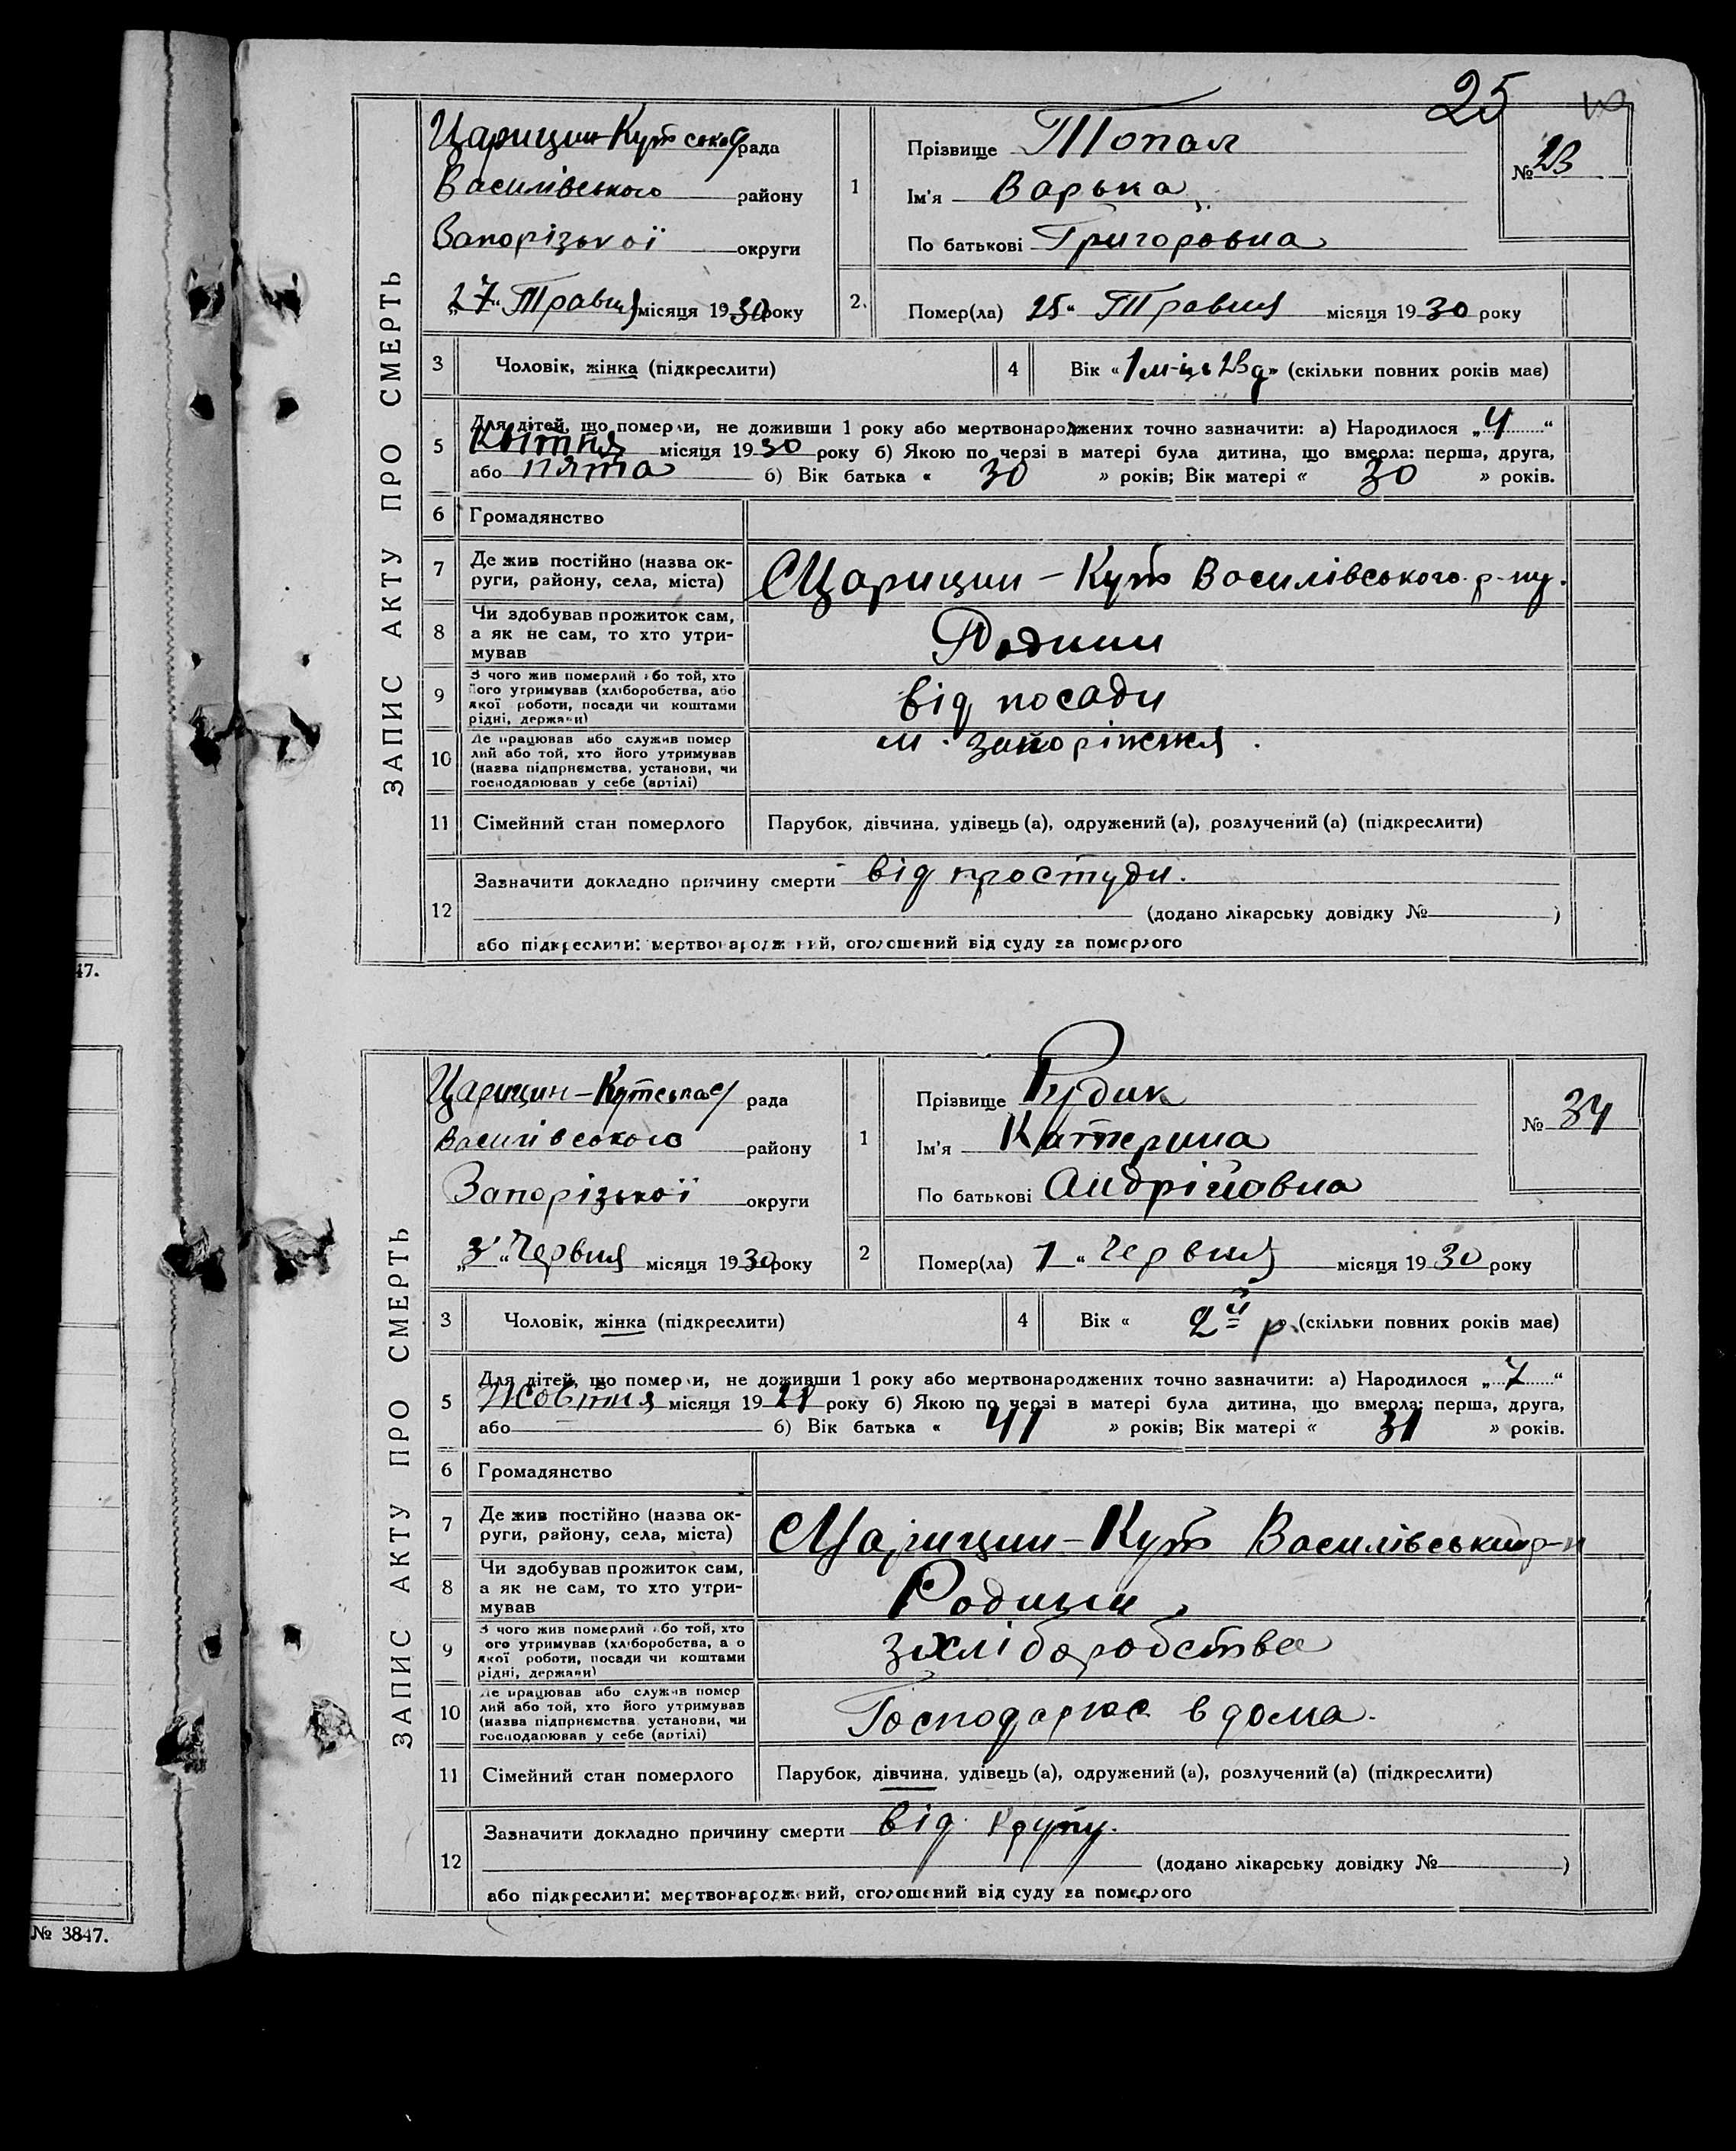 25
ЗАПИС АКТУ ПРО СМЕРТЬ
Царицин-Кутська рада
Василівського району
Запорізької округи
„27“ Травня місяця 1930 року
1
Прізвище Топал
Ім'я Варька
По батькові Григоровна
№ 23
2. Помер(ла) 25“ Травня місяця 1930 року
3 Чоловік, жінка (підкреслити)
4 Вік «1 м-ць 23 д» (скільки повних років має)
5 Для дітей, що померли, не доживши 1 року або мертвонароджених точно зазначити: а) Народилося „4“
Квітня місяця 1930 року б) Якою по черзі в матері була дитина, що вмерла: перша, друга,
або пята б) Вік батька « 30 » років; Вік матері « 30 » років.
6 Громадянство
7 Де жив постійно (назва ок-
руги, району, села, міста)
Царицин-Кут Василівського р-ну.
8 Чи здобував прожиток сам,
а як не сам, то хто утри-
мував
Родини
9 З чого жив померлий або той, хто
його утримував (хліборобства, або
якої роботи, посади чи коштами
рідні, держави)
від посади
10 Де працював або служив помер
лий або той, хто його утримував
(назва підприємства, установи, чи
господарював у себе (артілі)
м. Запоріжжя.
11 Сімейний стан померлого Парубок, дівчина, удівець (а), одружений (а), розлучений (а) (підкреслити)
12 Зазначити докладно причину смерти від простуди.
(додано лікарську довідку № )
або підкреслити: мертвонароджений, оголошений від суду за померлого
47.
ЗАПИС АКТУ ПРО СМЕРТЬ
Царицин-Кутська рада
Василівського району
Запорізької округи
„3“ Червня місяця 1930 року
1
Прізвище Рудик
Ім'я Катерина
По батькові Андрійовна
№ 34
2 Помер(ла) 1“ Червня місяця 1930 року
3 Чоловік, жінка (підкреслити)
4 Вік « 2й р. (скільки повних років має)
5 Для дітей, що померли, не доживши 1 року або мертвонароджених точно зазначити: а) Народилося „7“
Жовтня місяця 1928 року б) Якою по черзі в матері була дитина, що вмерла: перша, друга,
або б) Вік батька « 41 » років; Вік матері « 31 » років.
6 Громадянство
7 Де жив постійно (назва ок-
руги, району, села, міста)
Царицин-Кут Василівський р-н
8 Чи здобував прожиток сам,
а як не сам, то хто утри-
мував
Родини
9 З чого жив померлий або той, хто
його утримував (хліборобства, або
якої роботи, посади чи коштами
рідні, держави)
з хліборобства
10 Де працював або служив помер
лий або той, хто його утримував
(назва підприємства, установи, чи
господарював у себе (артілі)
Господарює вдома.
11 Сімейний стан померлого Парубок, дівчина, удівець (а), одружений (а), розлучений (а) (підкреслити)
12 Зазначити докладно причину смерти від крупу.
(додано лікарську довідку № )
або підкреслити: мертвонароджений, оголошений від суду за померлого
№ 3847.